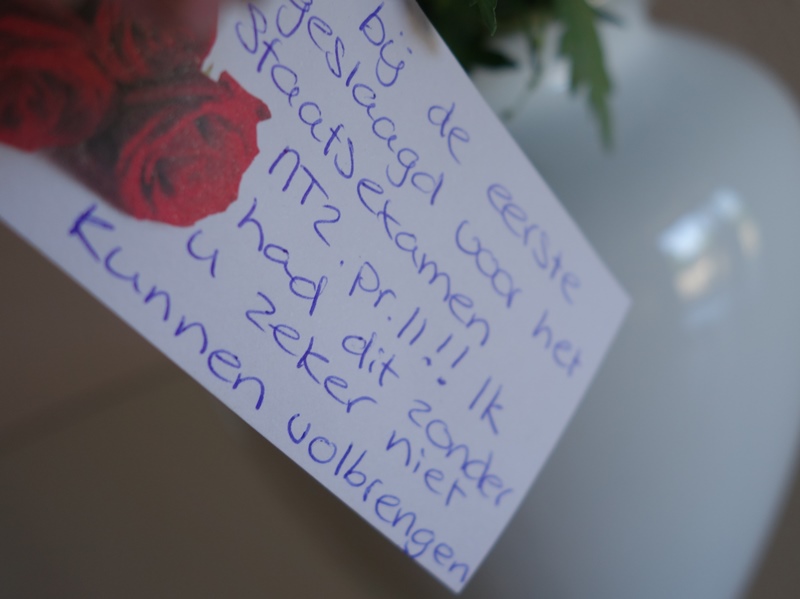 bij de eerste
geslaagd voor het
Staatsexamen
NT2. pr. II!! Ik
had dit zonder
u zeker niet
kunnen volbrengen